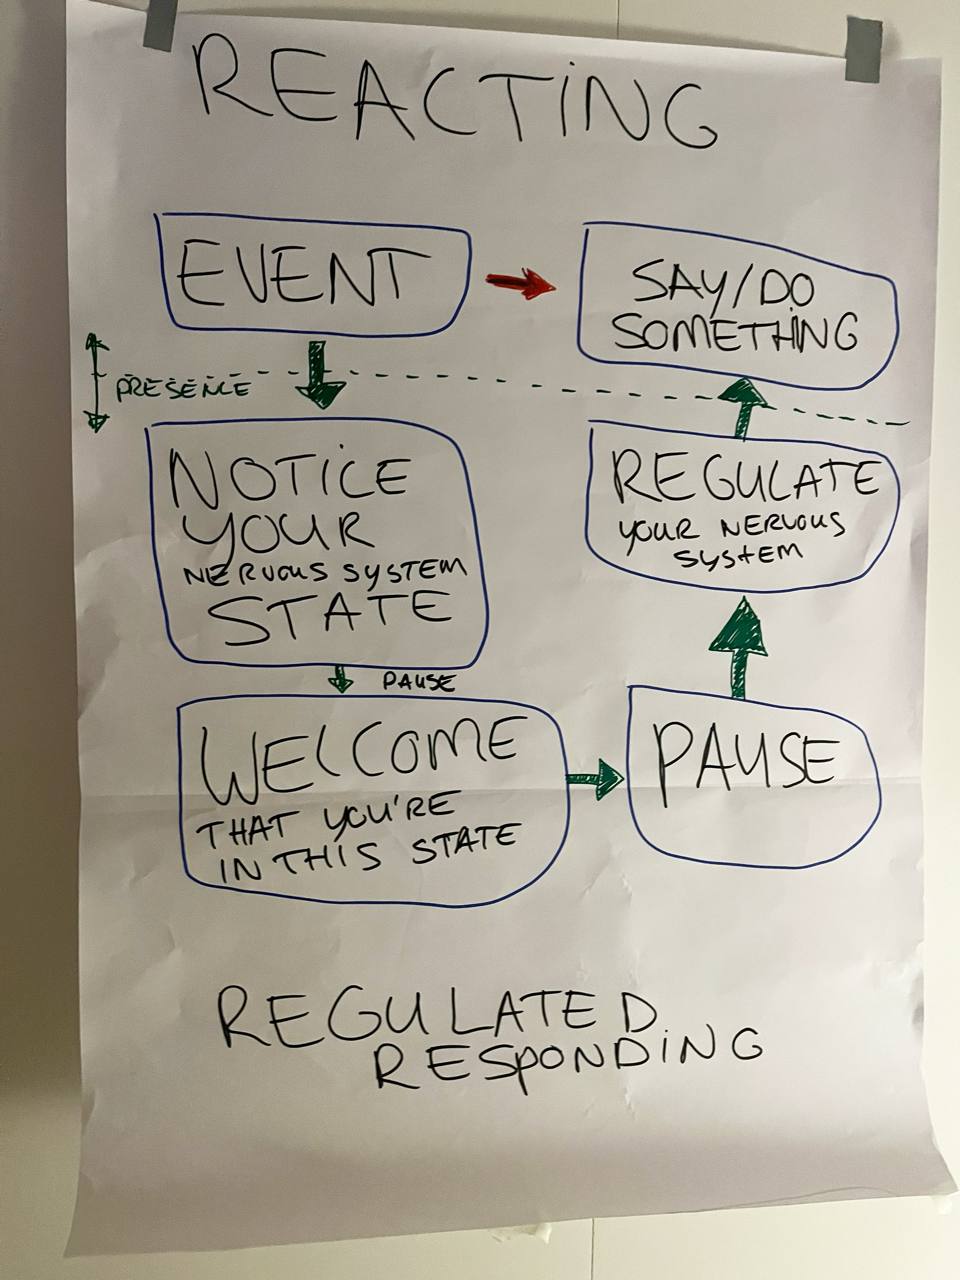 REACTING
EVENT
SAY/DO
SOMETHING
PRESENCE
NOTICE
YOUR
NERVOUS SYSTEM
STATE
REGULATE
YOUR NERVOUS
SYSTEM
PAUSE
WELCOME
THAT YOU'RE
IN THIS STATE
PAUSE
REGULATED
RESPONDING